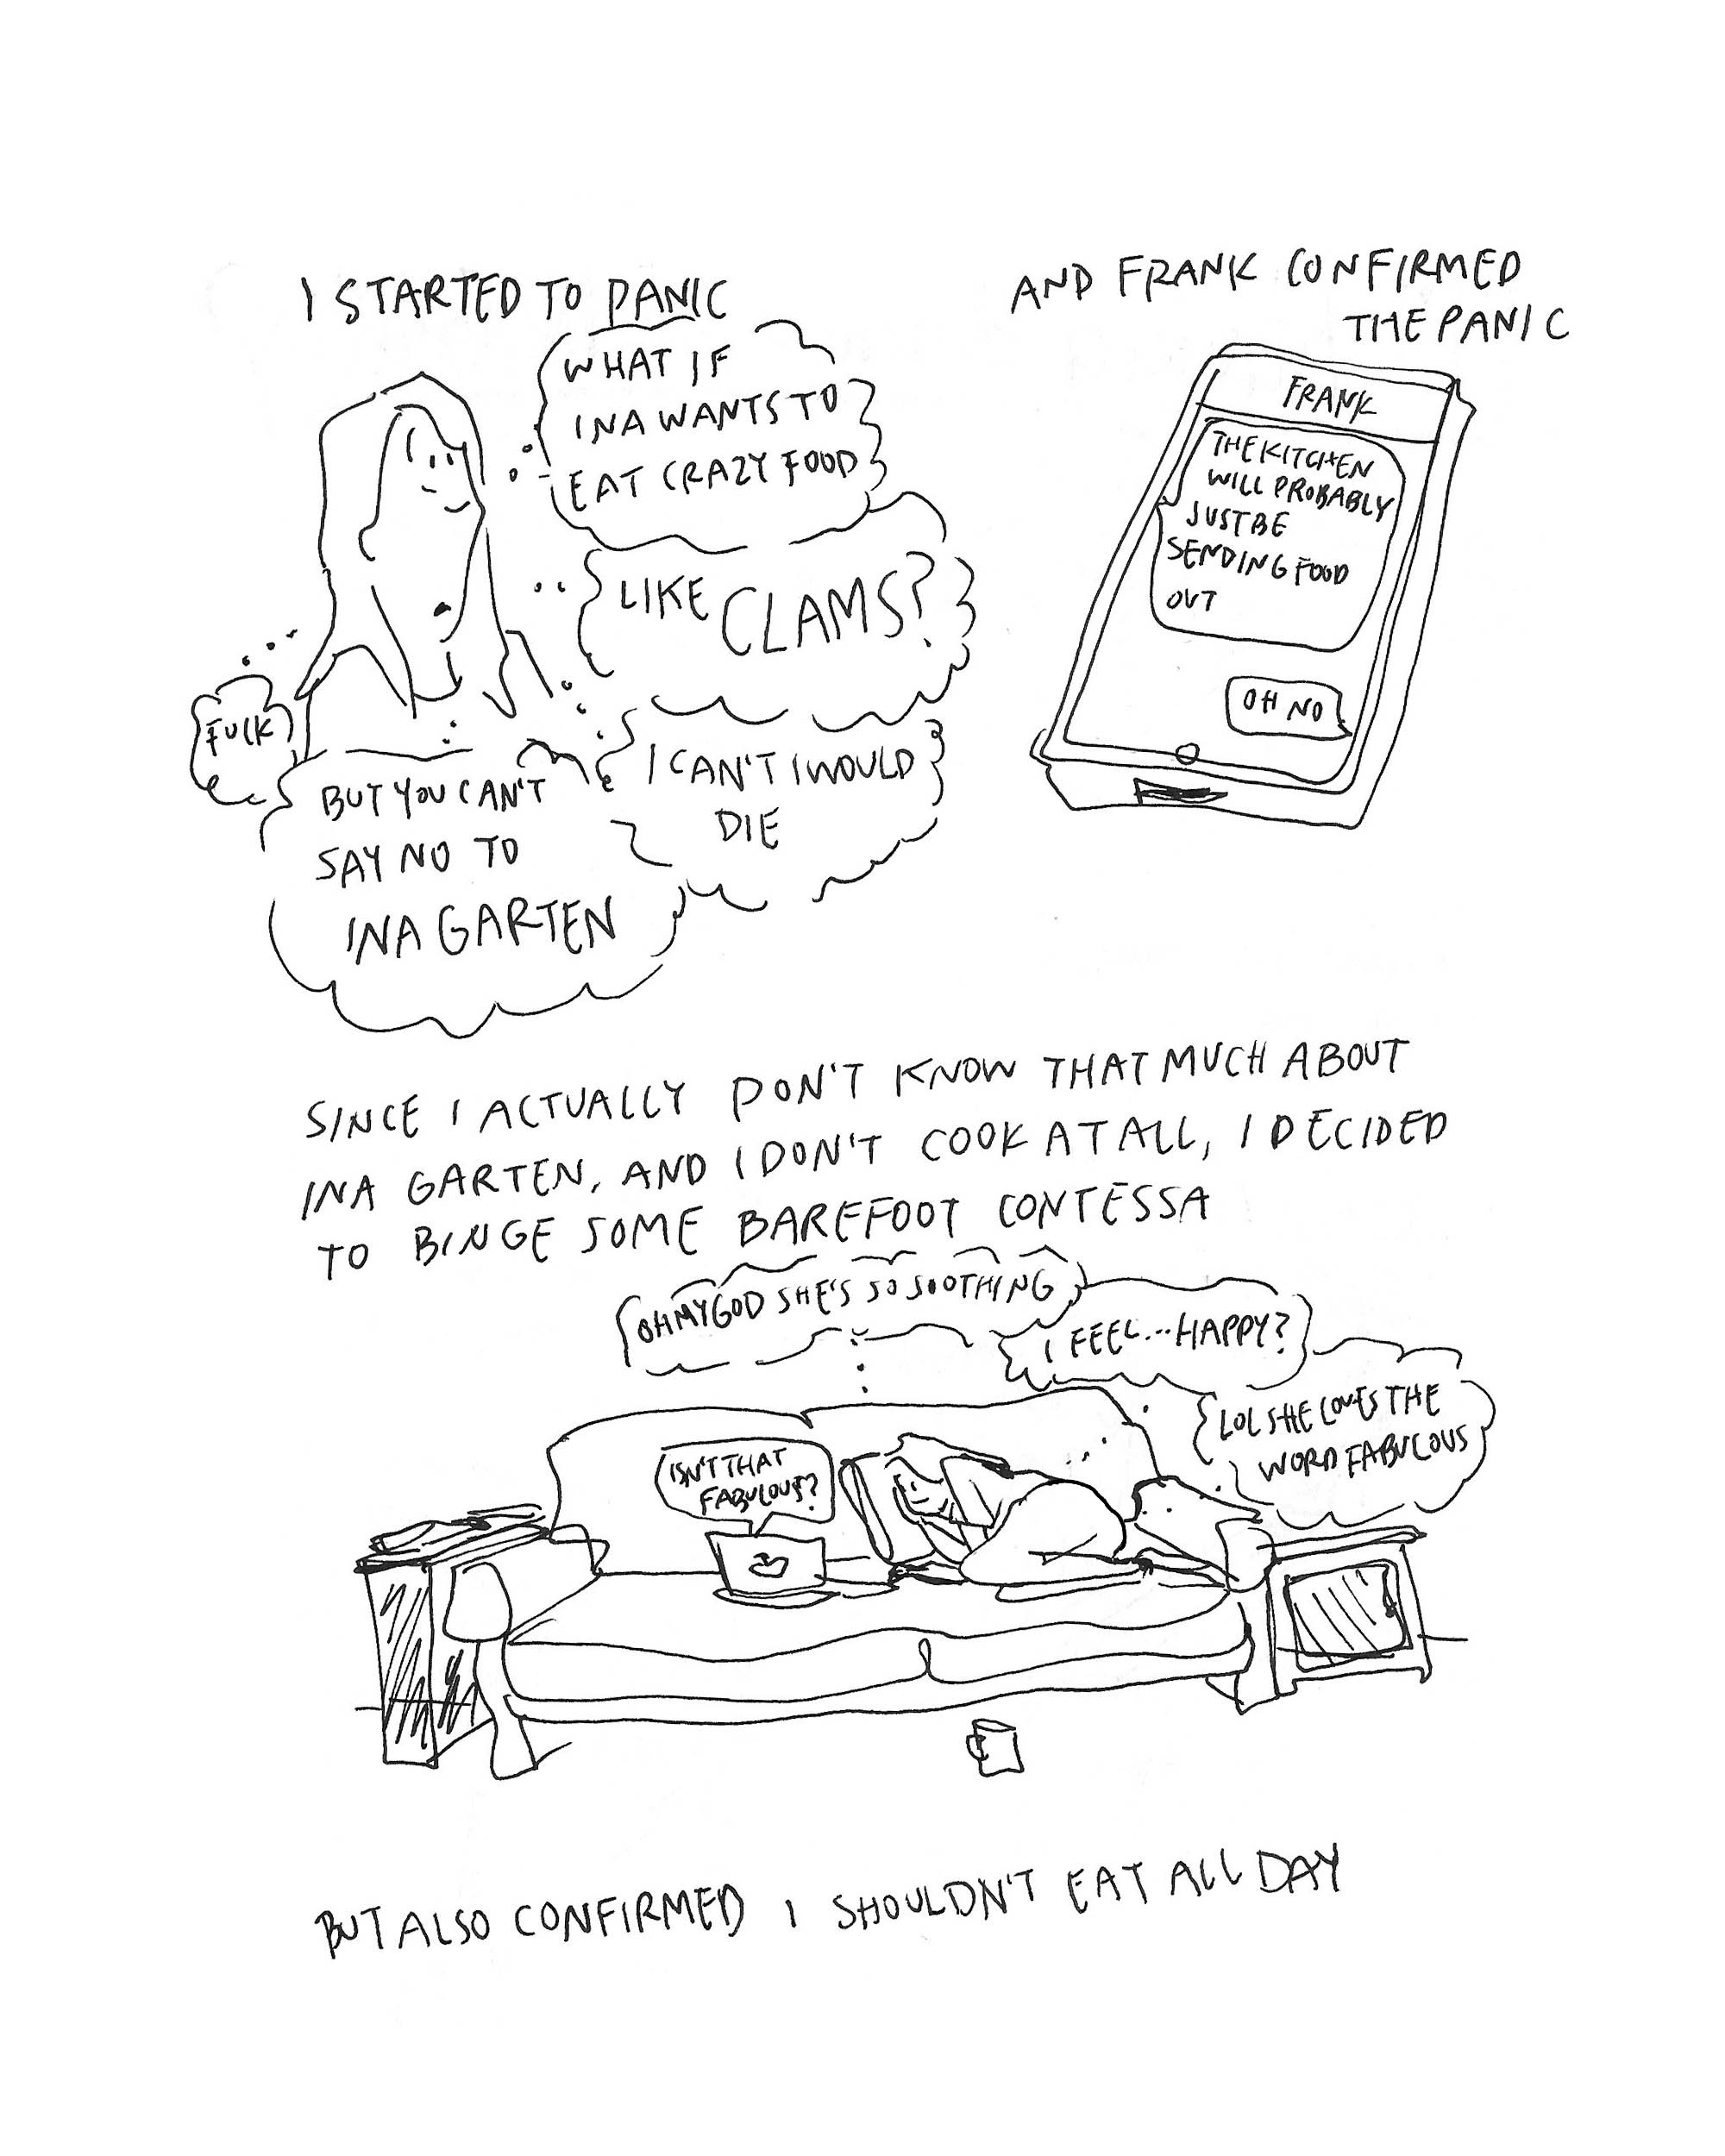 I STARTED TO PANIC
WHAT IF
INA WANTS TO
EAT CRAZY FOOD
LIKE CLAMS?
I CAN'T I WOULD
DIE
FUCK
BUT YOU CAN'T
SAY NO TO
INA GARTEN
AND FRANK CONFIRMED
THE PANIC
FRANK
THE KITCHEN
WILL PROBABLY
JUST BE
SENDING FOOD
OUT
OH NO
SINCE I ACTUALLY DON'T KNOW THAT MUCH ABOUT
INA GARTEN, AND I DON'T COOK AT ALL, I DECIDED
TO BINGE SOME BAREFOOT CONTESSA
OH MY GOD SHE'S SO SOOTHING
I FEEL...HAPPY?
LOL SHE LOVES THE
WORD FABULOUS
ISN'T THAT
FABULOUS?
BUT ALSO CONFIRMED I SHOULDN'T EAT ALL DAY